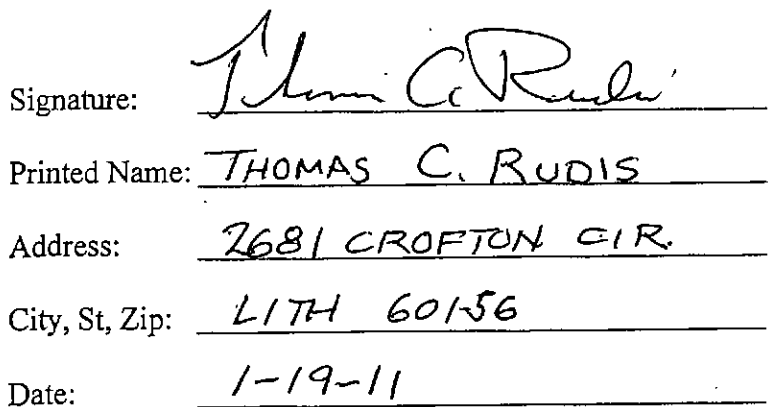 Signature: Thomas C. Rudis
Printed Name: THOMAS C. RUDIS
Address: 2681 CROFTON CIR.
City, St, Zip: LITH 60156
Date: 1-19-11